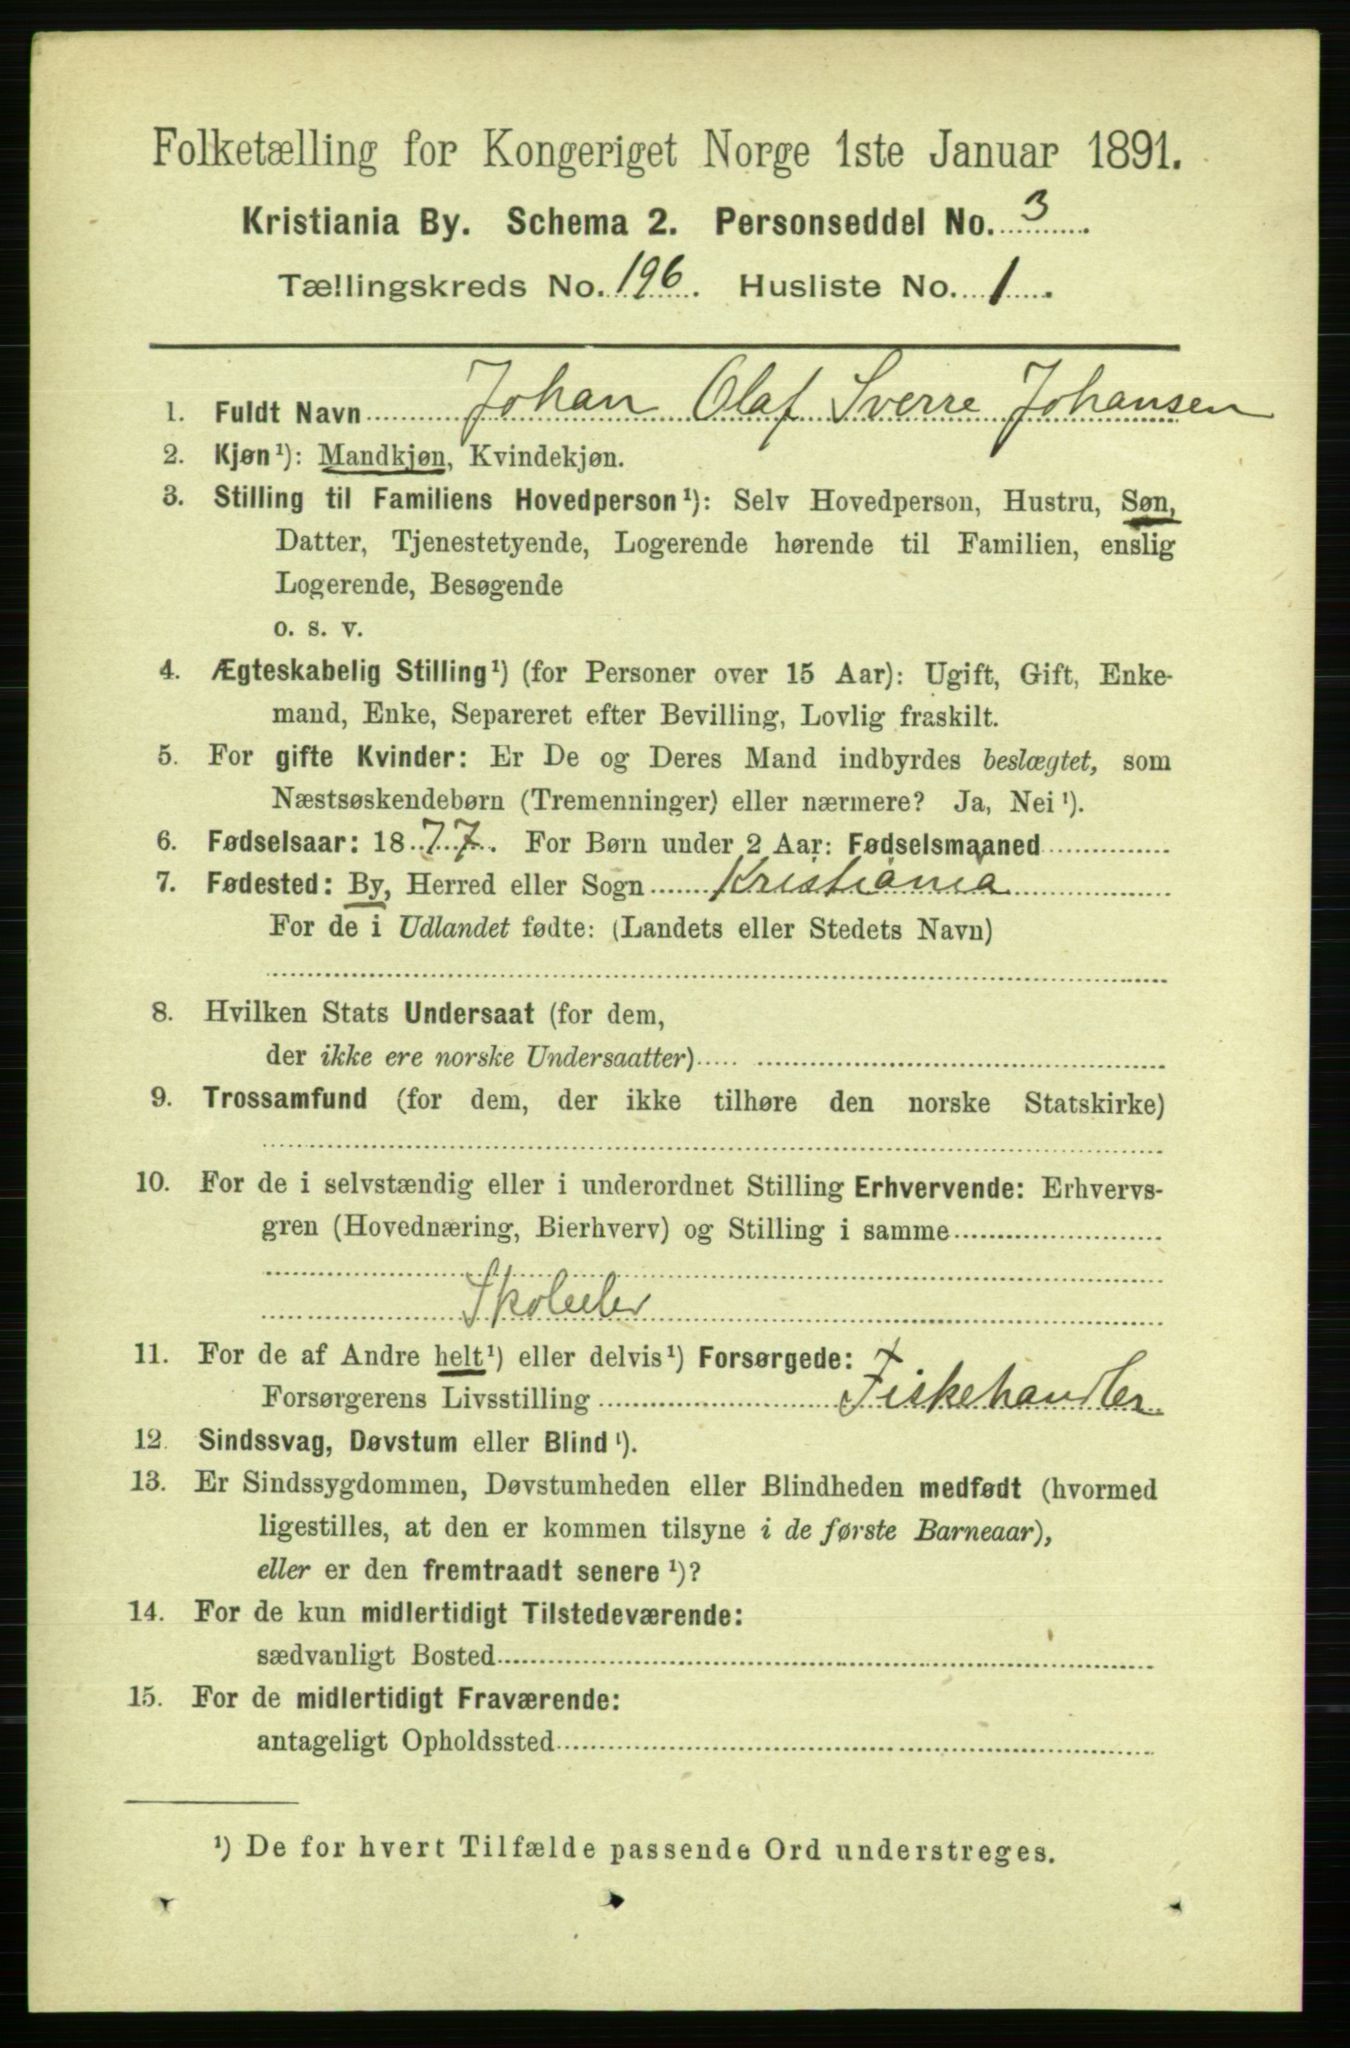 Folketælling for Kongeriget Norge 1ste Januar 1891.
Kristiania By. Schema 2. Personseddel No. 3
Tællingskreds No. 196. Husliste No. 1.
1. Fuldt Navn Johan Olaf Sverre Johansen
2. Kjøn¹): Mandkjøn, Kvindekjøn.
3. Stilling til Familiens Hovedperson¹): Selv Hovedperson, Hustru, Søn,
Datter, Tjenestetyende, Logerende hørende til Familien, enslig
Logerende, Besøgende
o. s. v.
4. Ægteskabelig Stilling¹) (for Personer over 15 Aar): Ugift, Gift, Enke-
mand, Enke, Separeret efter Bevilling, Lovlig fraskilt.
5. For gifte Kvinder: Er De og Deres Mand indbyrdes beslægtet, som
Næstsøskendebørn (Tremenninger) eller nærmere? Ja, Nei¹).
6. Fødselsaar: 1877. For Børn under 2 Aar: Fødselsmaaned
7. Fødested: By, Herred eller Sogn Kristiania
For de i Udlandet fødte: (Landets eller Stedets Navn)
8. Hvilken Stats Undersaat (for dem,
der ikke ere norske Undersaatter)
9. Trossamfund (for dem, der ikke tilhøre den norske Statskirke)
10. For de i selvstændig eller i underordnet Stilling Erhvervende: Erhvervs-
gren (Hovednæring, Bierhverv) og Stilling i samme
Skoleelev
11. For de af Andre helt¹) eller delvis¹) Forsørgede:
Forsørgerens Livsstilling Fiskehandler
12. Sindssvag, Døvstum eller Blind¹).
13. Er Sindssygdommen, Døvstumheden eller Blindheden medfødt (hvormed
ligestilles, at den er kommen tilsyne i de første Barneaar),
eller er den fremtraadt senere¹)?
14. For de kun midlertidigt Tilstedeværende:
sædvanligt Bosted
15. For de midlertidigt Fraværende:
antageligt Opholdssted
¹) De for hvert Tilfælde passende Ord understreges.